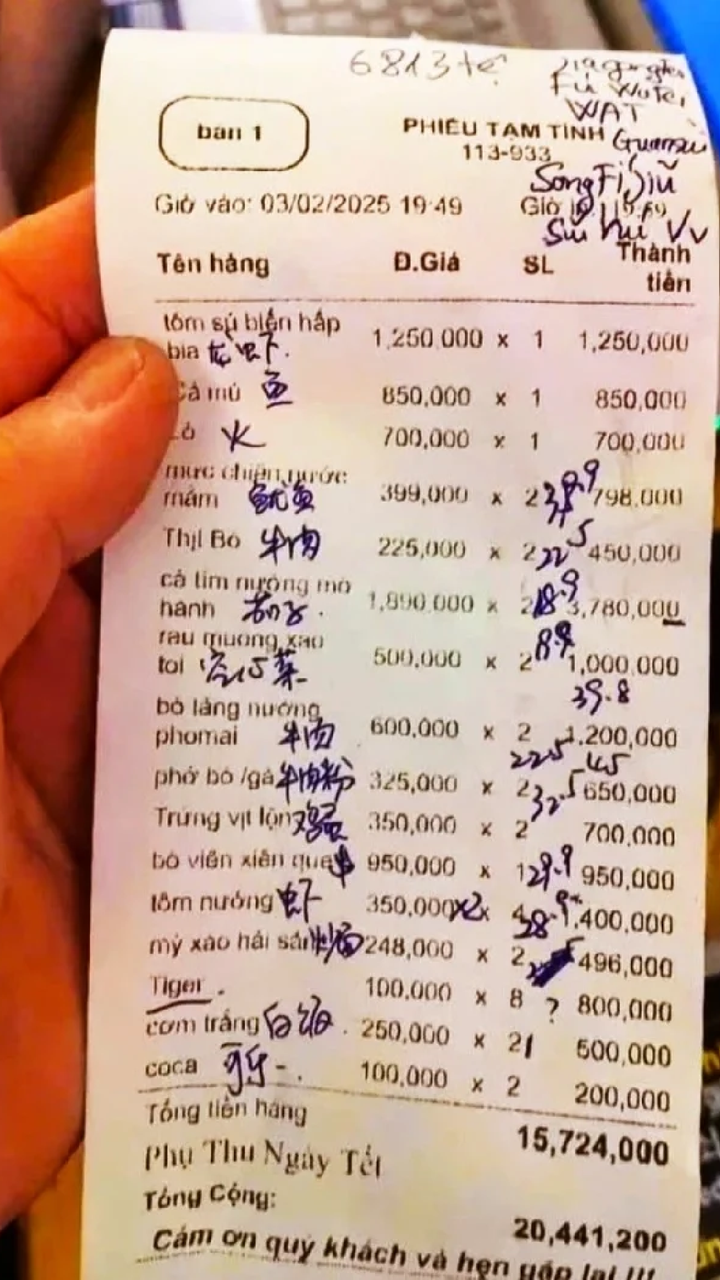 6813tệ
Fú Wute,
WAT
bàn 1
PHIẾU TẠM TÍNH
113-933
SongFijiŭ
Giờ vào: 03/02/2025 19:49 Giờ
Tên hàng Đ.Giá SL Thành tiền
tôm sú biển hấp
bia 龙虾. 1,250,000 x 1 1,250,000
Cá mú 鱼 850,000 x 1 850,000
火 700,000 x 1 700,000
mực chiên nước
mắm 鱿鱼 399,000 x 2 39.9 798,000
Thịt Bò 牛肉 225,000 x 2 22.5 450,000
cà tím nướng mỡ
hành 茄子. 1,890,000 x 2 18.9 3,780,000
rau muống xào
tỏi 菜 500,000 x 2 1,000,000
39.8
bò tảng nướng
phomai 牛肉 600,000 x 2 1,200,000
phở bò /gà 牛肉粉 325,000 x 2 650,000
Trứng vịt lộn 鸡蛋 350,000 x 2 700,000
bò viên xiên que 950,000 x 1 29.9 950,000
tôm nướng 虾 350,000 x 4 1,400,000
mỳ xào hải sản 炒面 248,000 x 2 496,000
Tiger. 100,000 x 8 ? 800,000
cơm trắng 白饭. 250,000 x 2 500,000
coca 100,000 x 2 200,000
Tổng tiền hàng 15,724,000
Phụ Thu Ngày Tết
Tổng Cộng: 20,441,200
Cảm ơn quý khách và hẹn gặp lại !!!